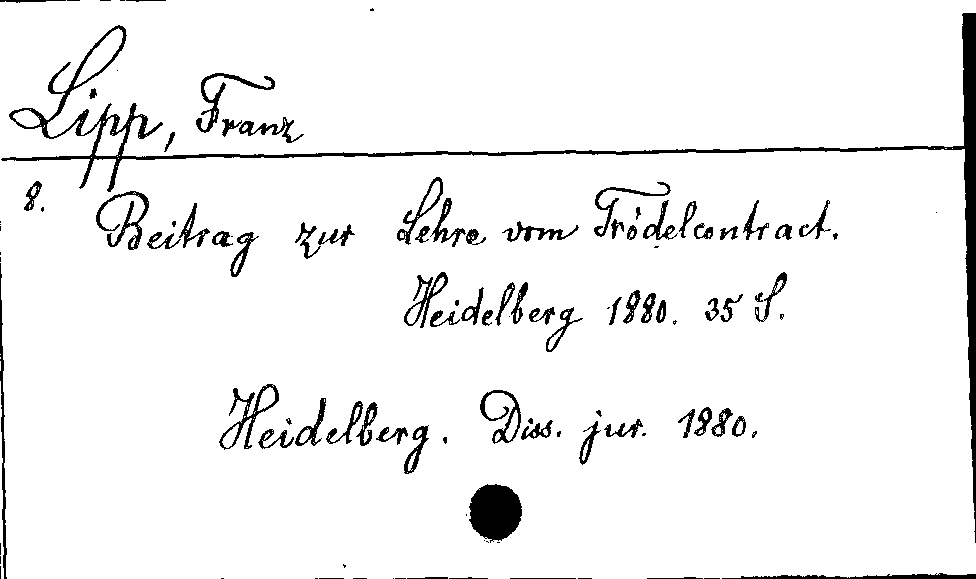 Lipp, Franz
8.
Beitrag zur Lehre vom Trödelcontract.
Heidelberg 1880. 35 S.
Heidelberg. Diss. jur. 1880.